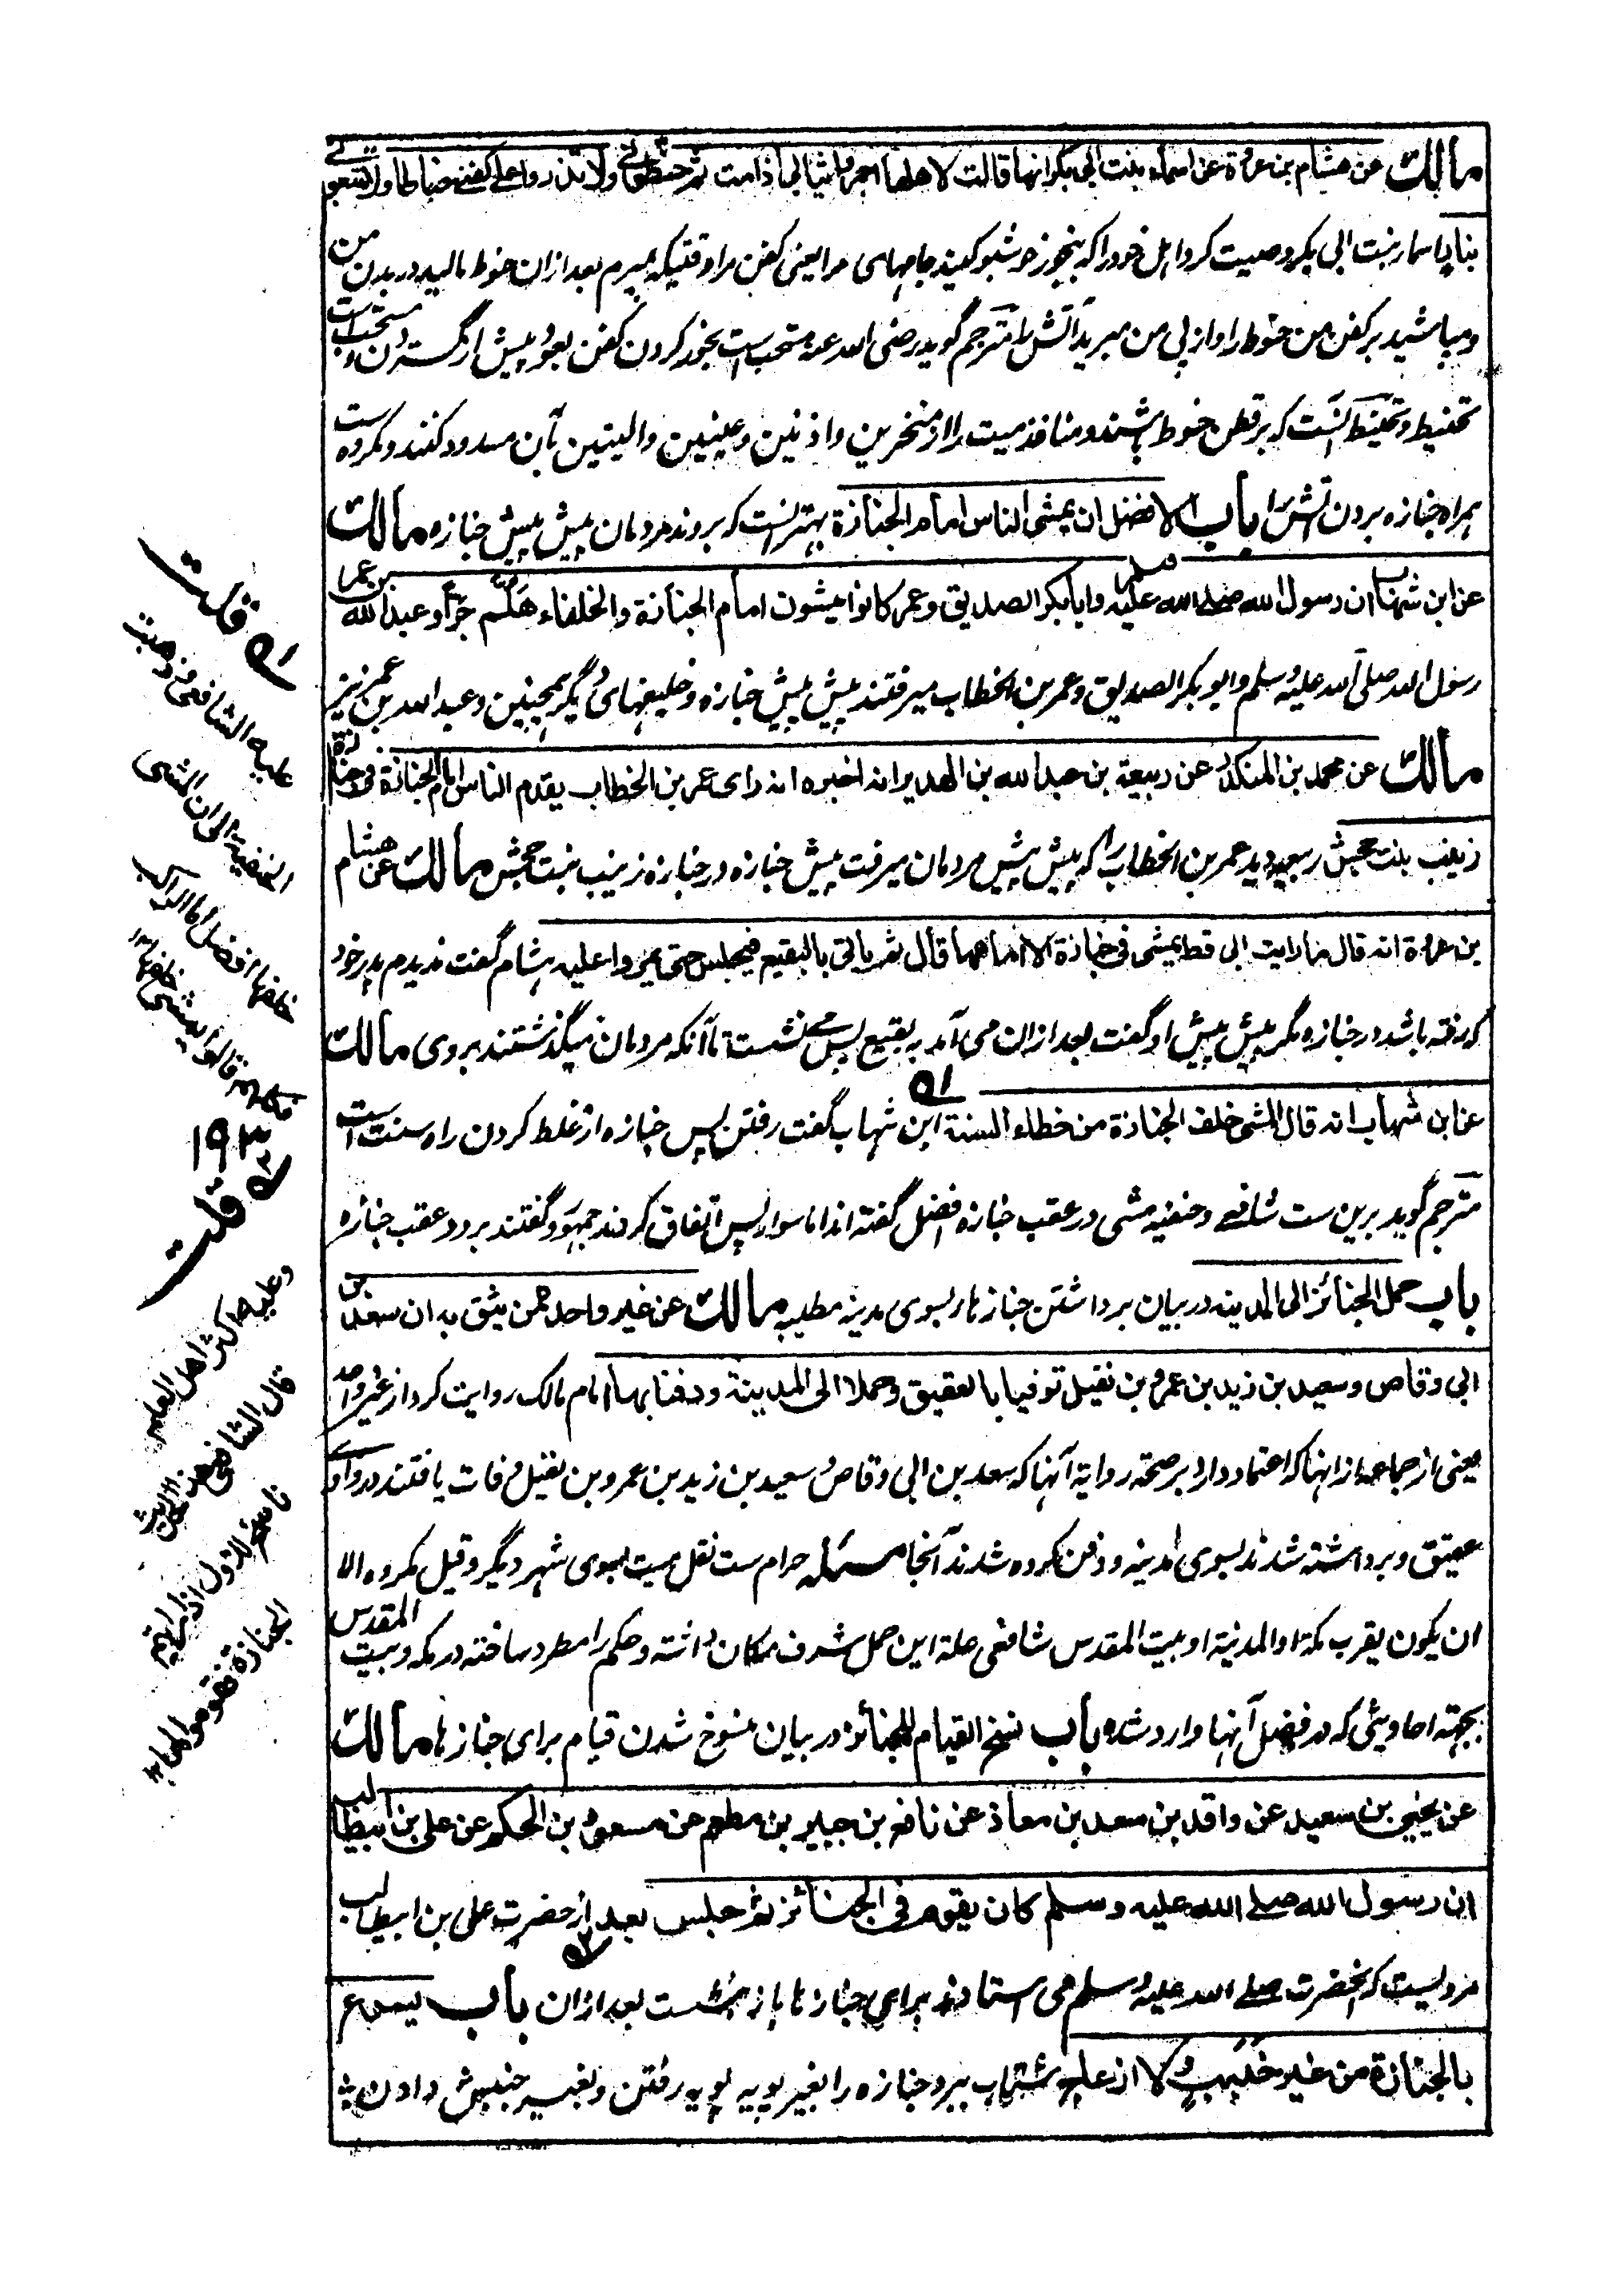 مالك عن هشام بن عروة عن اسماء بنت ابی بکر انها قالت لاهلها اجمروا ثیابی اذا مت ثم حنطونی ولا تذروا علی کفنی حناطا ولا تتبعونی
بنار اسمار بنت ابی بکر وصیت کرد اهل خود را که بنجور خوشبو کنید جامهای مرا یعنی کفن مرا وقتیکه بمیرم بعد ازان حنوط مالید در بدن من
ومپاشید بر کفن من حنوط را واز پی من مبرید آتش را مترجم گوید رضی الله عنه مستحب است بخور کردن کفن بعود پیش از گستردن و مستحب است
تحنیط و تحنیط آنست که بر قطن حنوط پاشند و منافذ میت را از منخرین واذنین وعینین والیتین بآن مسدود کنند ومکروه ست
همراه جنازه بردن آتش را باب الافضل ان یمشی الناس امام الجنازة بهتر آنست که بروند مردمان پیش پیش جنازه مالك
عن ابن شهاب ان رسول الله صلے الله علیه وسلم وابابکر الصدیق وعمر کانوا یمشون امام الجنازة والخلفاء هلم جرا وعبدالله بن عمر
رسول الله صلی الله علیه وسلم وابو بکر الصدیق وعمر بن الخطاب میرفتند پیش پیش جنازه وخلیفهای دیگر همچنین وعبد الله بن عمر نیز
مالك عن محمد بن المنکدر عن ربیعة بن عبدالله بن الهدیر انه اخبره انه رای عمر بن الخطاب یقدم الناس امام الجنازة فی جنازة
زینب بنت جحش ربیعه دید عمر بن الخطاب را که پیش پیش مردمان میرفت پیش جنازه در جنازه زینب بنت جحش مالك عن هشام
بن عروة انه قال ما رایت ابی قط یمشی فی جنازة الا امامها قال ثم یاتی بالبقیع فیجلس حتی یمروا علیه هشام گفت ندیدم پدر خود
که رفته باشد در جنازه مگر پیش پیش او گفت بعد ازان می آمد به بقیع پس می نشست تا آنکه مردمان میگذشتند بروی مالك
عن ابن شهاب انه قال المشی خلف الجنازة من خطاء السنة ۵۱ ابن شهاب گفت رفتن پس جنازه از غلط کردن راه سنت است
مترجم گوید برین ست شافعے وحنفیه مشی در عقب جنازه افضل گفته اند اما سوار پس اتفاق کردند جمهور وگفتند برود عقب جنازه
باب حمل الجنائز الی المدینه در بیان برداشتن جنازها بسوی مدینه مطیبه مالك عن غیر واحد ممن یثق به ان سعد بن
ابی وقاص وسعید بن زید بن عمرو بن نفیل توفیا بالعقیق وحملا الی المدینة ودفنا بها امام مالک روایت کرد از غیر واحد
یعنی از جماعه ازانها که اعتماد دارد بر صحة روایة آنها که سعد بن ابی وقاص وسعید بن زید بن عمرو بن نفیل وفات یافتند در وادی
عقیق وبرداشته شدند بسوی مدینه ودفن کرده شدند آنجا مسئله حرام ست نقل میت بسوی شهر دیگر وقیل مکروه الا
ان یکون بقرب مکة او المدینة او بیت المقدس شافعی علة این حمل شرف مکان داشته وحکم را مطرد ساخته در مکه وبیت المقدس
بجهة احادیثی که در فضل آنها وارد شده باب نسخ القیام للجنائز در بیان منسوخ شدن قیام برای جنازها مالك
عن یحیی بن سعید عن واقد بن سعد بن معاذ عن نافع بن جبیر بن مطعم عن مسعود بن الحکم عن علی بن ابیطالب
ان رسول الله صلے الله علیه وسلم کان یقوم فی الجنائز ثم جلس بعد ۵۲ از حضرت علی بن ابیطالب
مرویست که آنحضرت صلے الله علیه وسلم می استادند برای جنازها باز نشست بعد ازان باب یسرع
بالجنازة من غیر خبب ولا ازعاج شتاب ببرد جنازه را بغیر پویه پویه رفتن وبغیر جنبش دادن
۵۱ قلت
علیه الشافعی وذهبت
الحنفیة الی ان المشی
خلفها افضل اما الراکب
فکلهم قالوا یمشی خلفها ۱۲
۱۹۳
۵۲ قلت
وعلیه اکثر اهل العلم
قال الشافعی هذا الحدیث
ناسخ للاول اذا رایتم
الجنازة فقوموا لها ۱۲